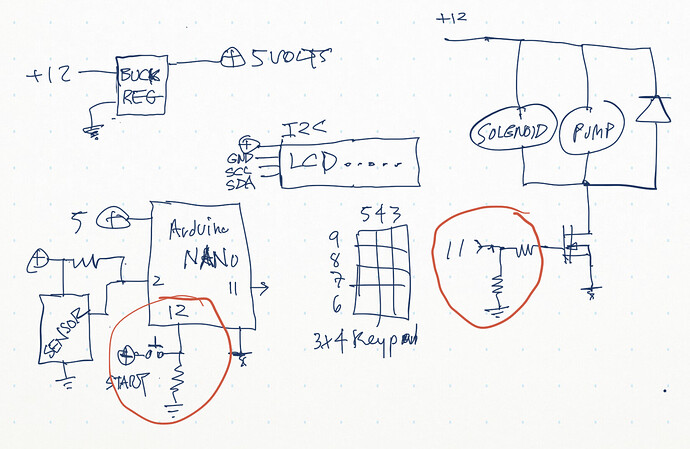 +12
BUCK
REG
+ 5 VOLTS
+12
SOLENOID
PUMP
I2C
+
GND
SCC
SDA
LCD ......
5 +
Arduino
NANO
2
11
12
+
SENSOR
+
START
5 4 3
9
8
7
6
3x4 Keypad
11